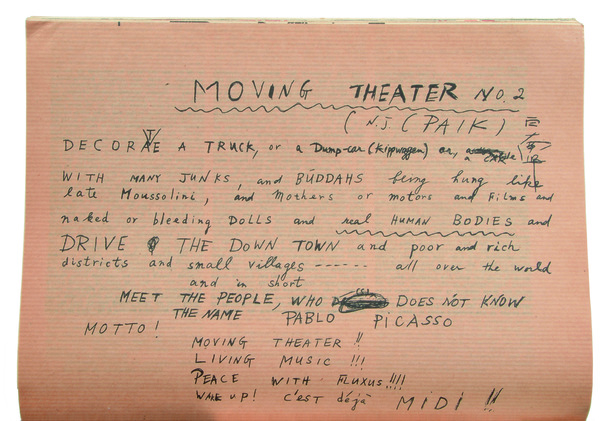 MOVING THEATER NO. 2
(N.J. (PAIK)
DECORATE A TRUCK, or a Dump-car (Kippwagen) or, a
WITH MANY JUNKS, and BUDDAHS being hung like
late Moussolini, and Mothers or motors and Films and
naked or bleeding DOLLS and real HUMAN BODIES and
DRIVE THE DOWN TOWN and poor and rich
districts and small villages ------ all over the world
and in short
MEET THE PEOPLE, WHO DOES NOT KNOW
THE NAME PABLO PICASSO
MOTTO!
MOVING THEATER !!
LIVING MUSIC !!!
PEACE WITH FLUXUS !!!!
WAKE UP! C'EST déjà MIDI !!